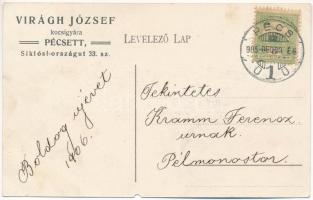 VIRÁGH JÓZSEF
kocsigyára
PÉCSETT,
Siklósi-országut 33. sz.
LEVELEZŐ LAP
PÉCS
Boldog ujévet
1906.
Tekintetes
Kramm Ferencz
urnak.
Pélmonostor.